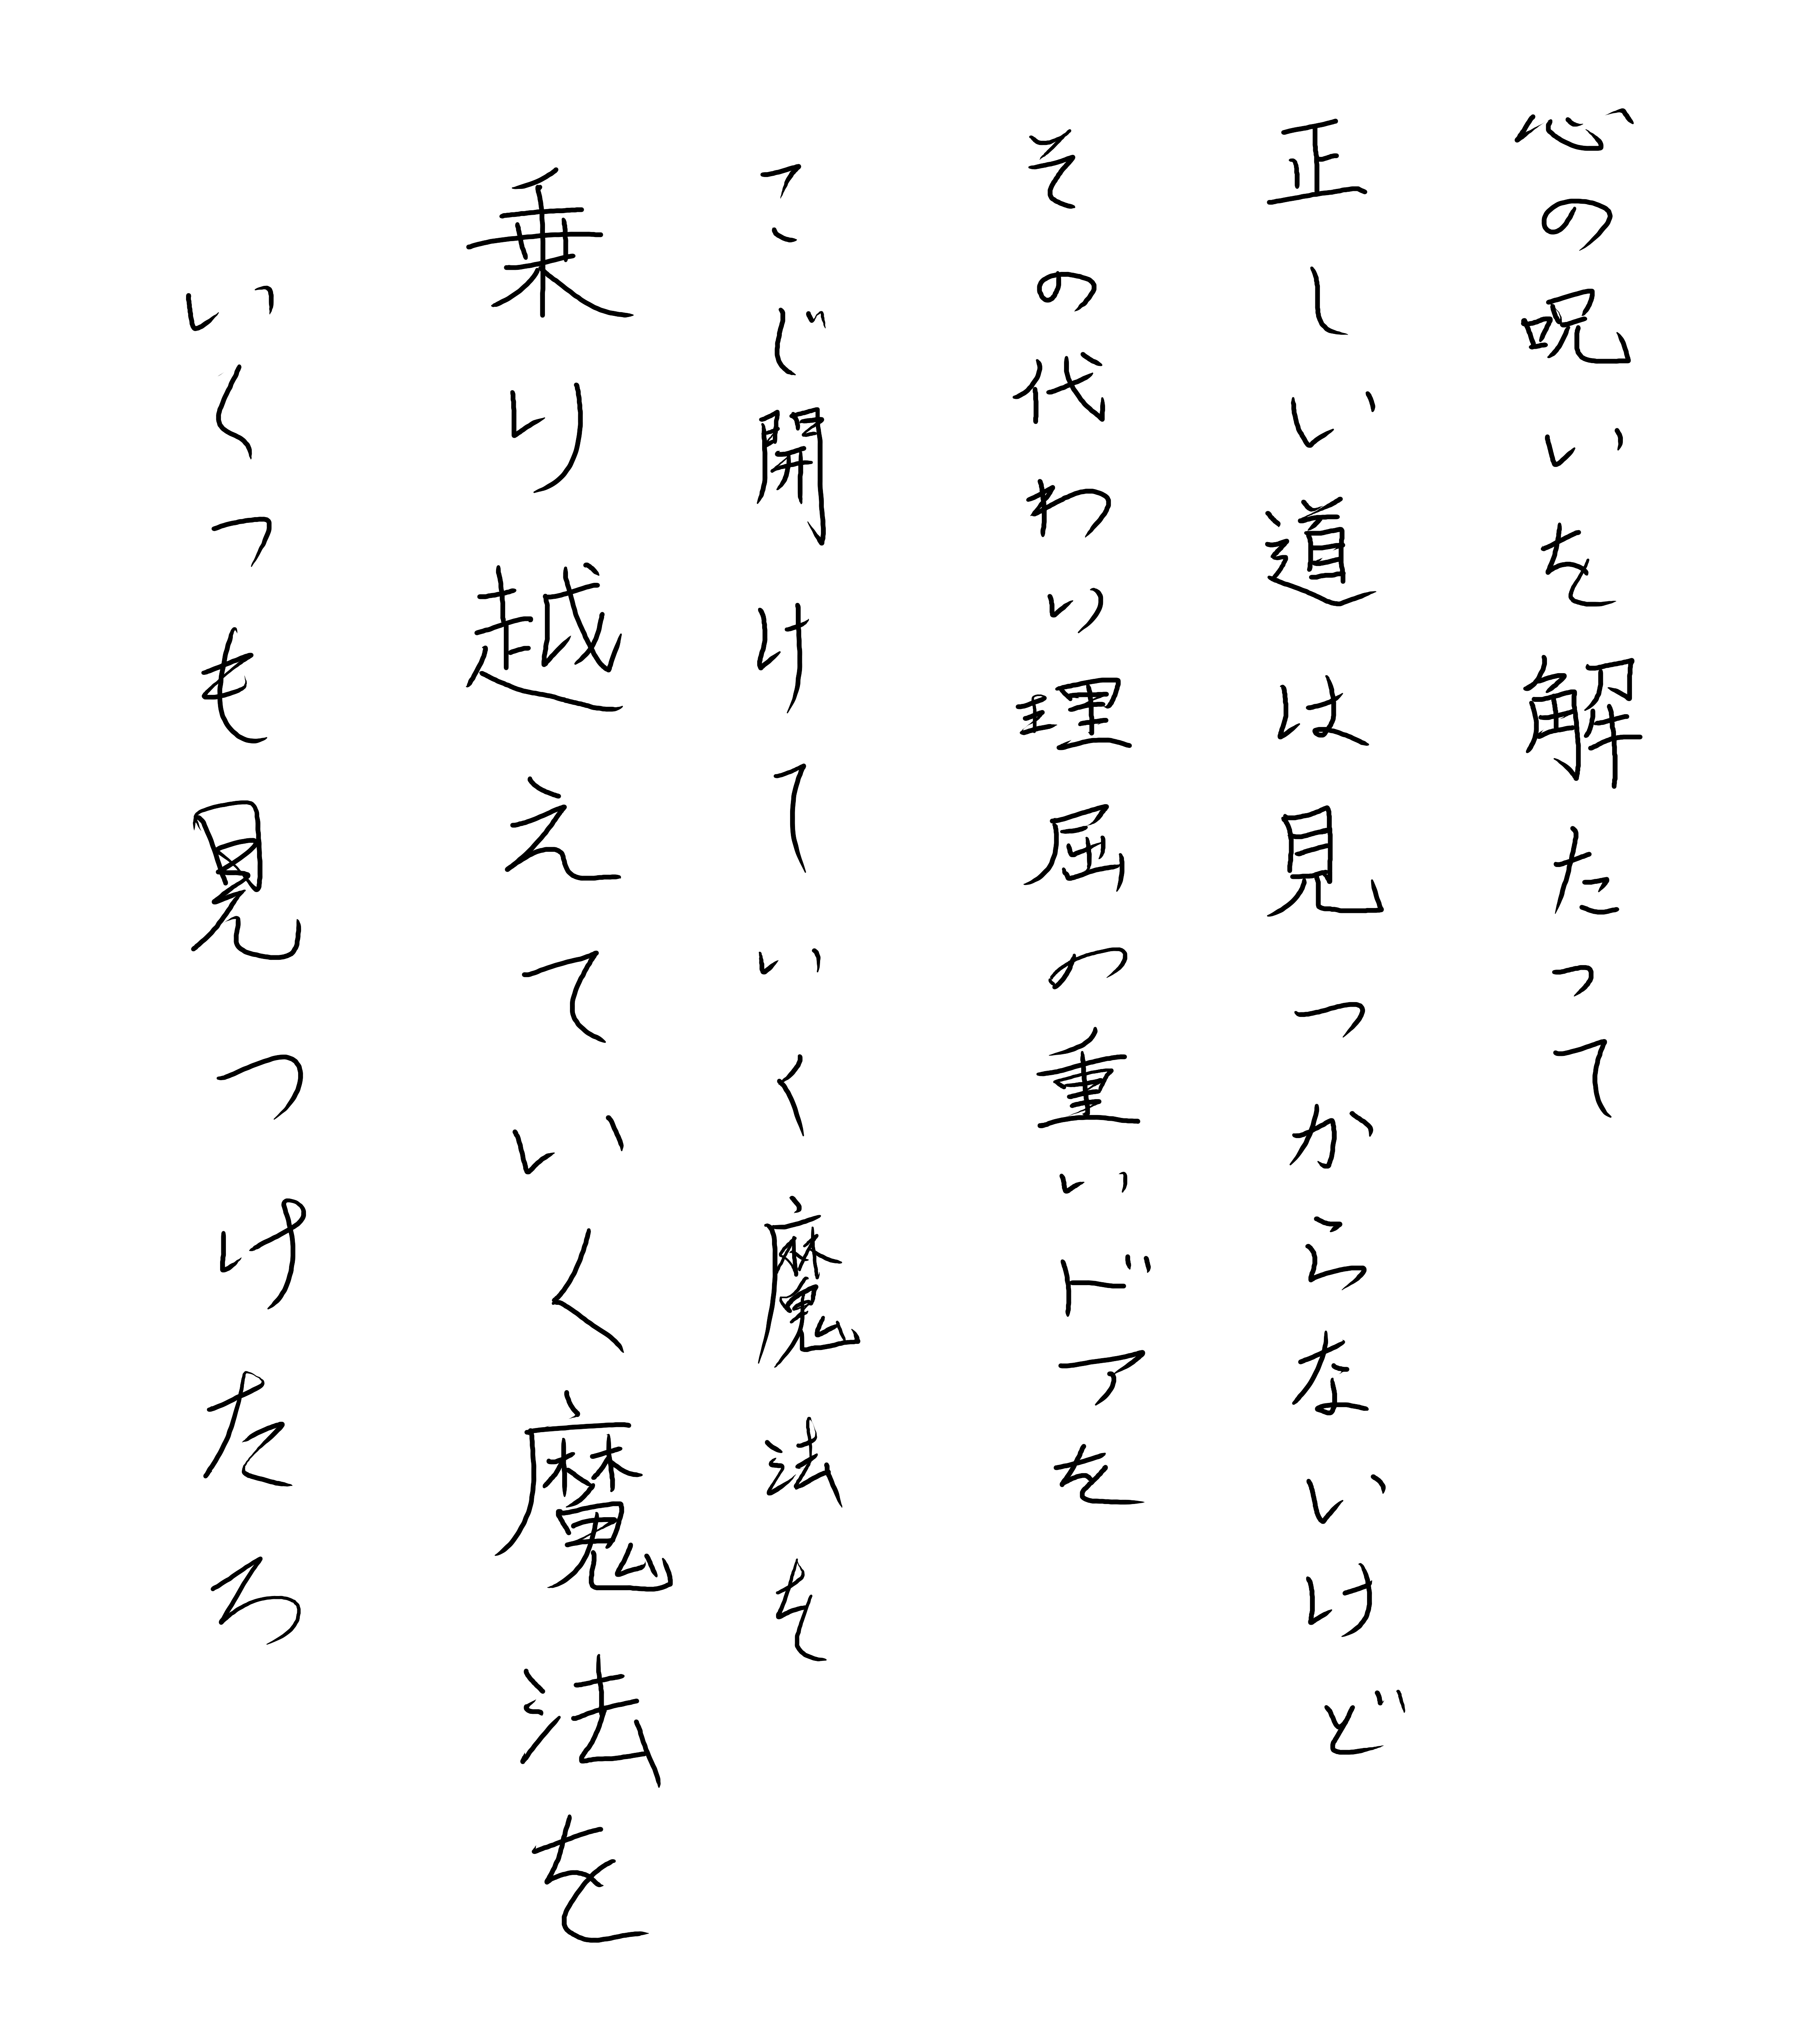 心の呪いを解たって
正しい道は見つからないけど
その代わり理屈の重いドアを
こじ開けていく魔法を
乗り越えていく魔法を
いくつも見つけたろ